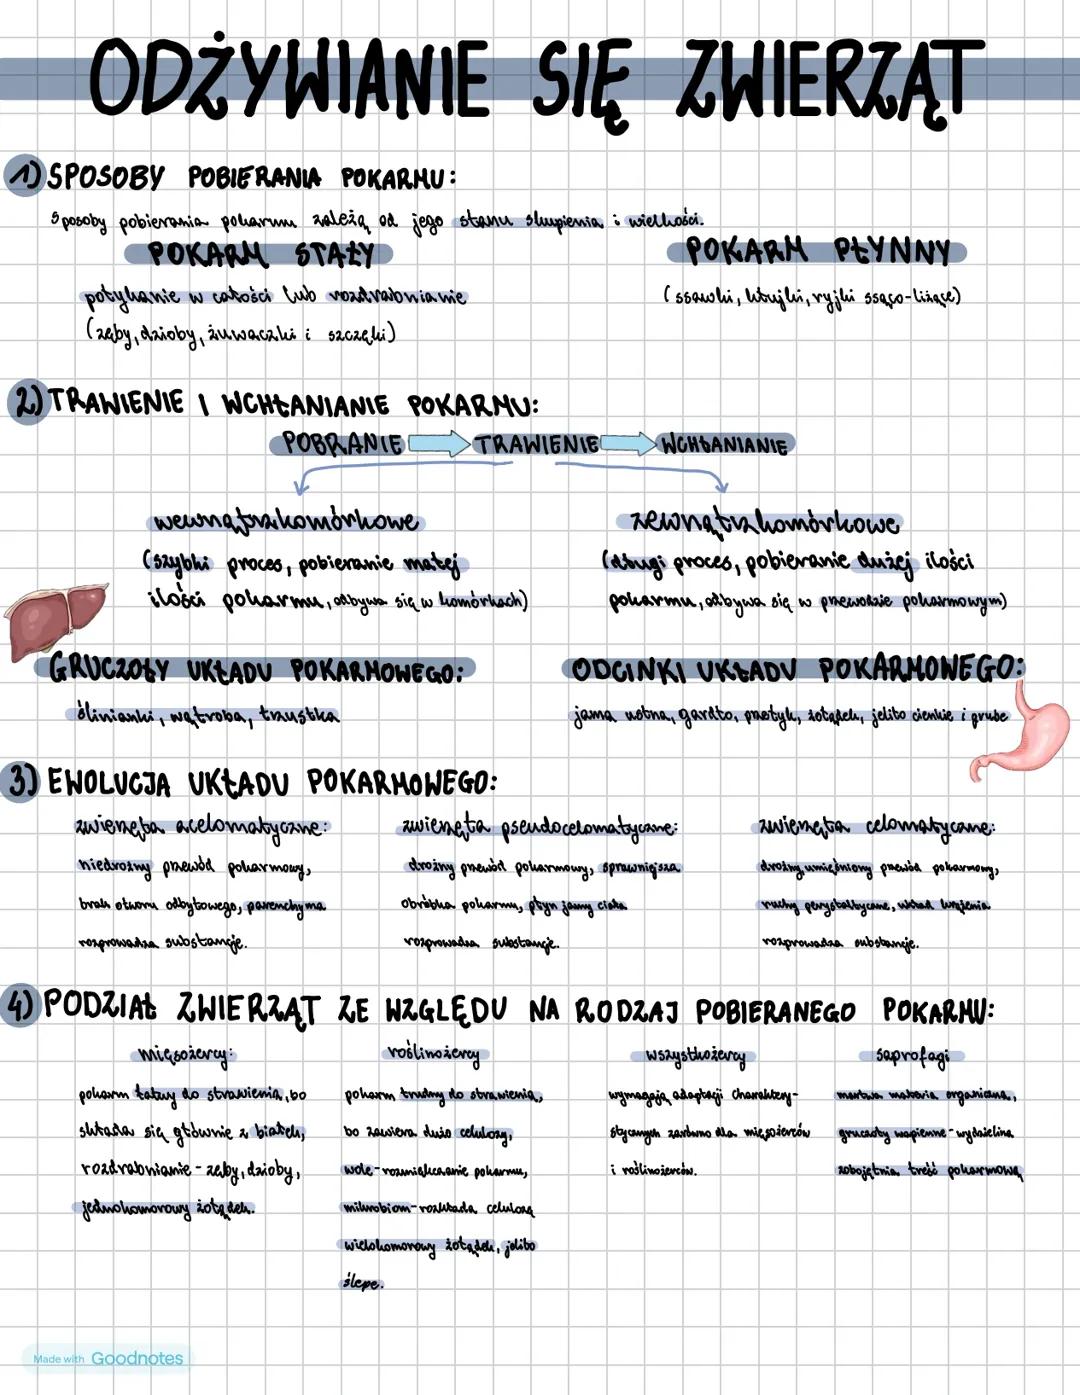 ODŻYWIANIE SIĘ ZWIERZĄT
1) SPOSOBY POBIERANIA POKARMU:
Sposoby pobierania pokarmu zależą od jego stanu skupienia i wielkości.
POKARM STAŁY
połykanie w całości lub rozdrabnianie
(zęby, dzioby, żuwaczki i szczęki)
POKARM PŁYNNY
(ssawki, kłujki, ryjki ssąco-liżące)
2) TRAWIENIE I WCHŁANIANIE POKARMU:
POBRANIE TRAWIENIE WCHŁANIANIE
wewnątrzkomórkowe
(szybki proces, pobieranie małej
ilości pokarmu, odbywa się w komórkach)
zewnątrzkomórkowe
(długi proces, pobieranie dużej ilości
pokarmu, odbywa się w przewodzie pokarmowym)
GRUCZOŁY UKŁADU POKARMOWEGO:
ślinianki, wątroba, trzustka
ODCINKI UKŁADU POKARMOWEGO:
jama ustna, gardło, przełyk, żołądek, jelito cienkie i grube
3) EWOLUCJA UKŁADU POKARMOWEGO:
zwierzęta acelomatyczne:
niedrożny przewód pokarmowy,
brak otworu odbytowego, parenchyma
rozprowadza substancje.
zwierzęta pseudocelomatyczne:
drożny przewód pokarmowy, sprawniejsza
obróbka pokarmu, płyn jamy ciała
rozprowadza substancje.
zwierzęta celomatyczne:
drożny, umięśniony przewód pokarmowy,
ruchy perystaltyczne, układ krążenia
rozprowadza substancje.
4) PODZIAŁ ZWIERZĄT ZE WZGLĘDU NA RODZAJ POBIERANEGO POKARMU:
mięsożercy:
pokarm łatwy do strawienia, bo
składa się głównie z białek,
rozdrabnianie - zęby, dzioby,
jednokomorowy żołądek.
roślinożercy
pokarm trudny do strawienia,
bo zawiera dużo celulozy,
wole - rozmiękczanie pokarmu,
mikrobiom - rozkłada celulozę
wielokomorowy żołądek, jelito
ślepe.
wszystkożercy
wymagają adaptacji charaktery-
stycznych zarówno dla mięsożerców
i roślinożerców.
saprofagi
martwa materia organiczna,
gruczoły wapienne - wydzielina
zobojętnia treść pokarmową
Made with Goodnotes